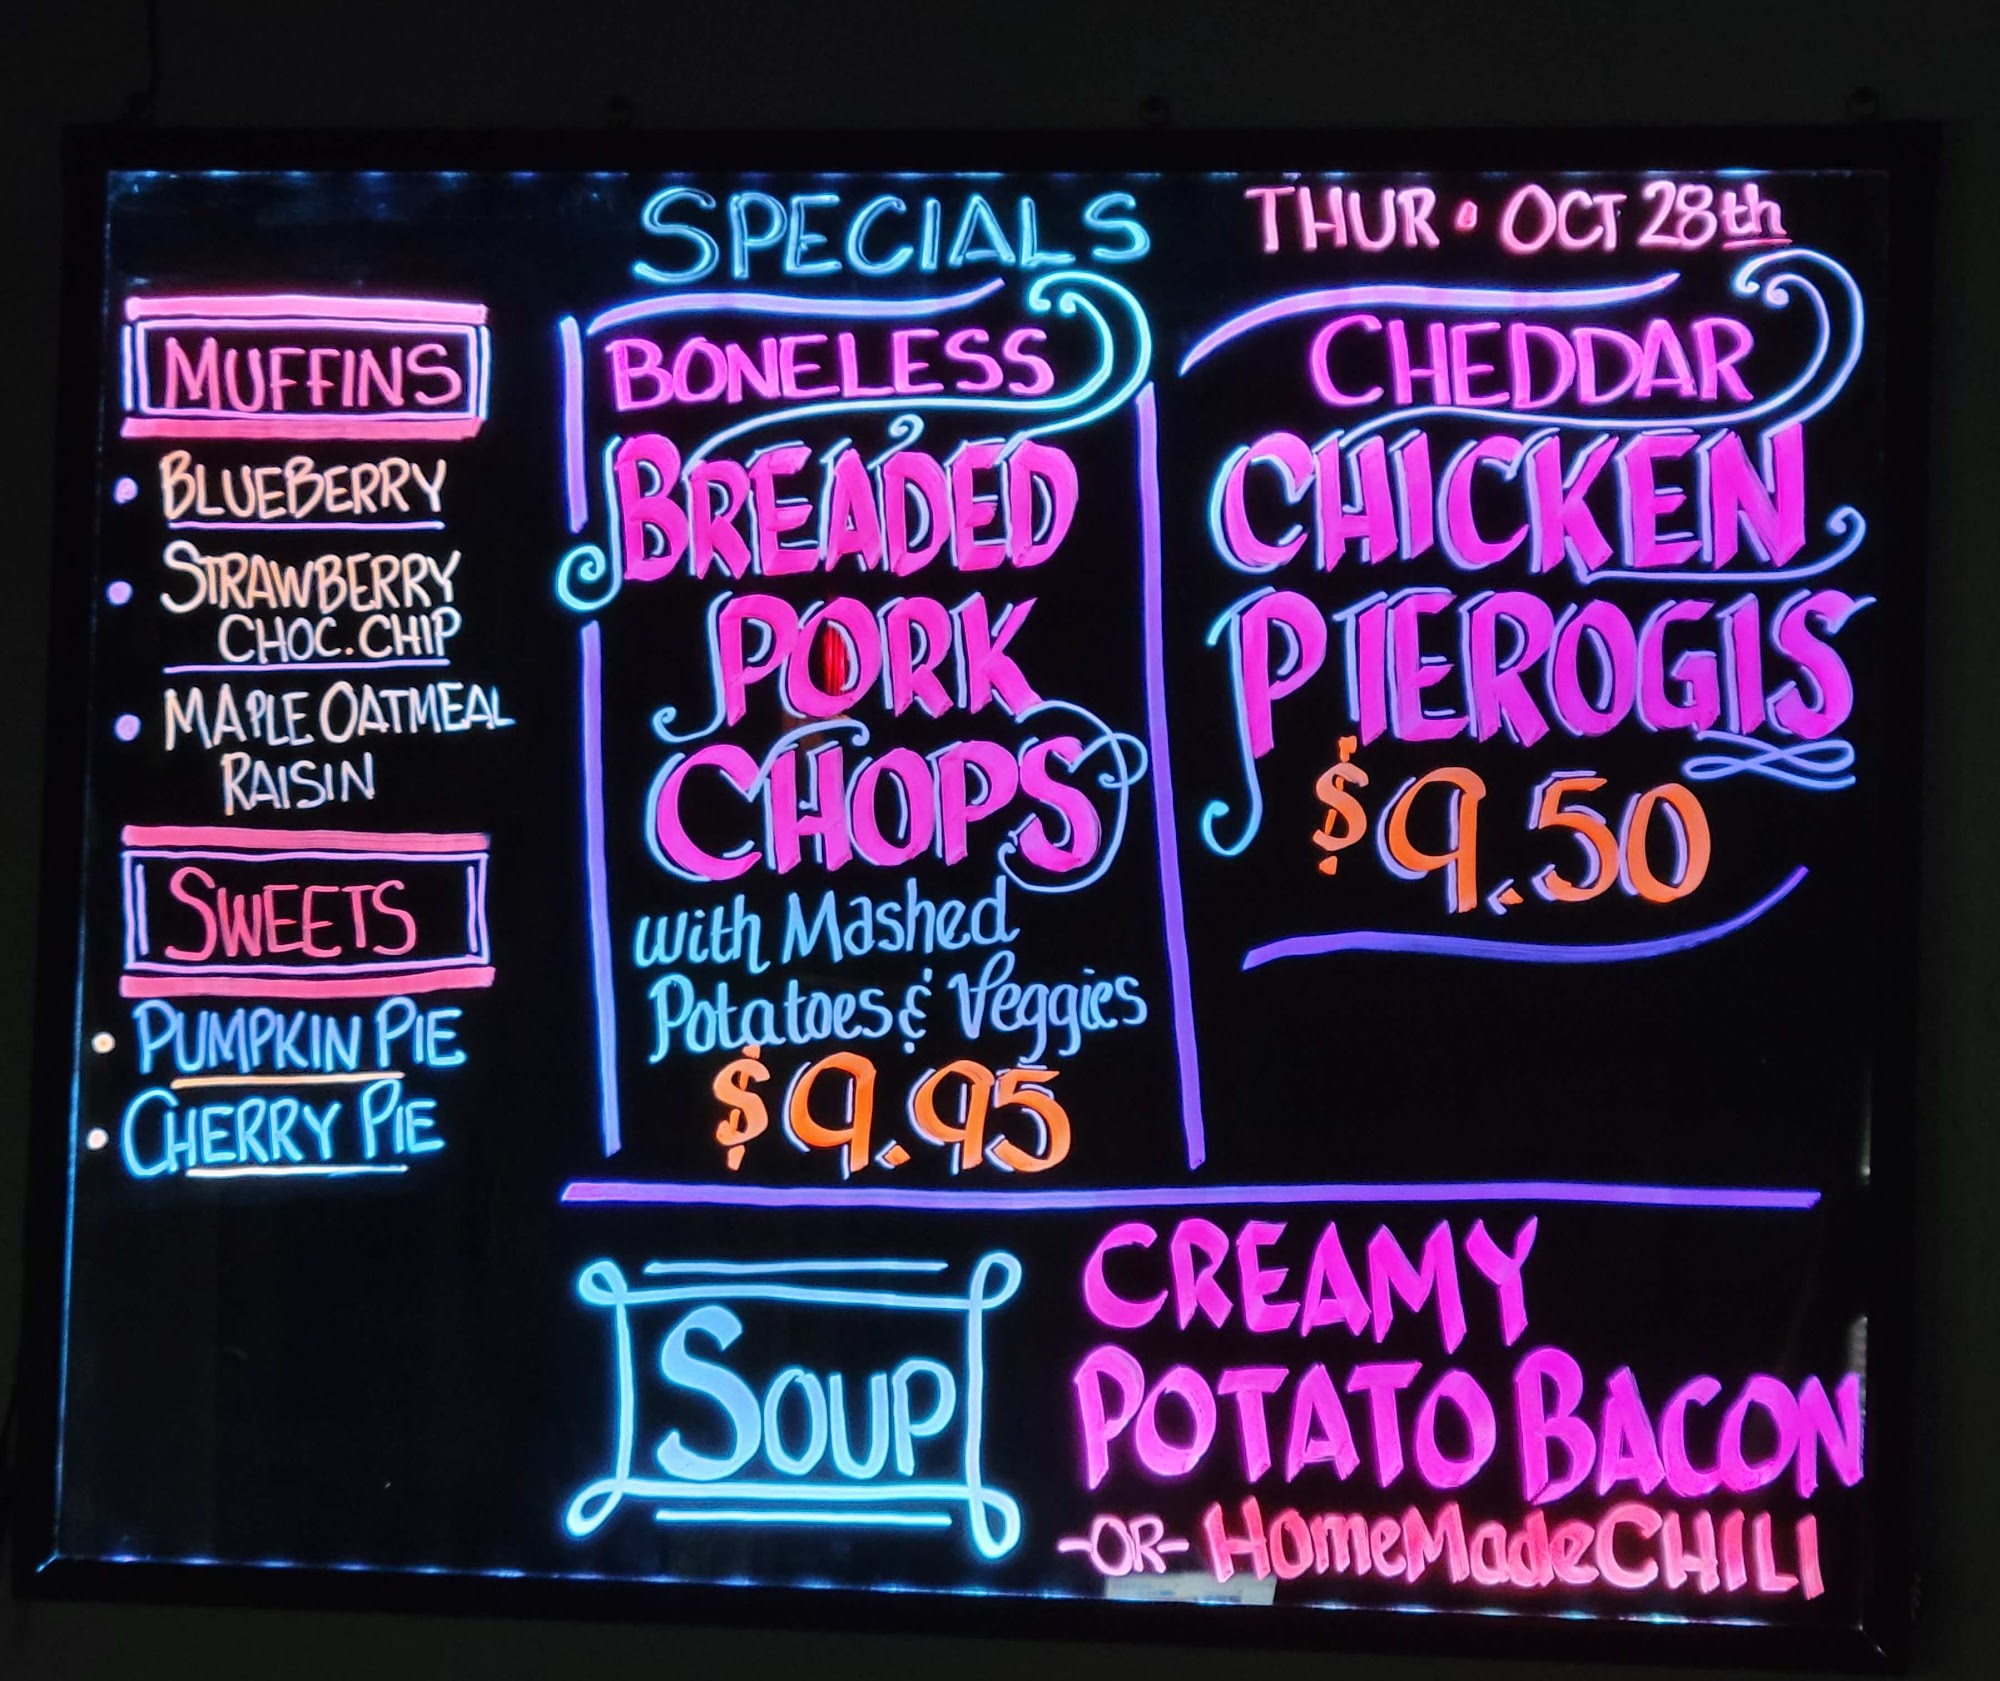 SPECIALS
THUR • OCT 28th
MUFFINS
• BLUEBERRY
• STRAWBERRY
CHOC. CHIP
• MAPLE OATMEAL
RAISIN
SWEETS
• PUMPKIN PIE
• CHERRY PIE
BONELESS
BREADED
PORK
CHOPS
with Mashed
Potatoes & Veggies
$9.95
CHEDDAR
CHICKEN
PIEROGIS
$9.50
SOUP
CREAMY
POTATO BACON
-OR- HomeMadeCHILI